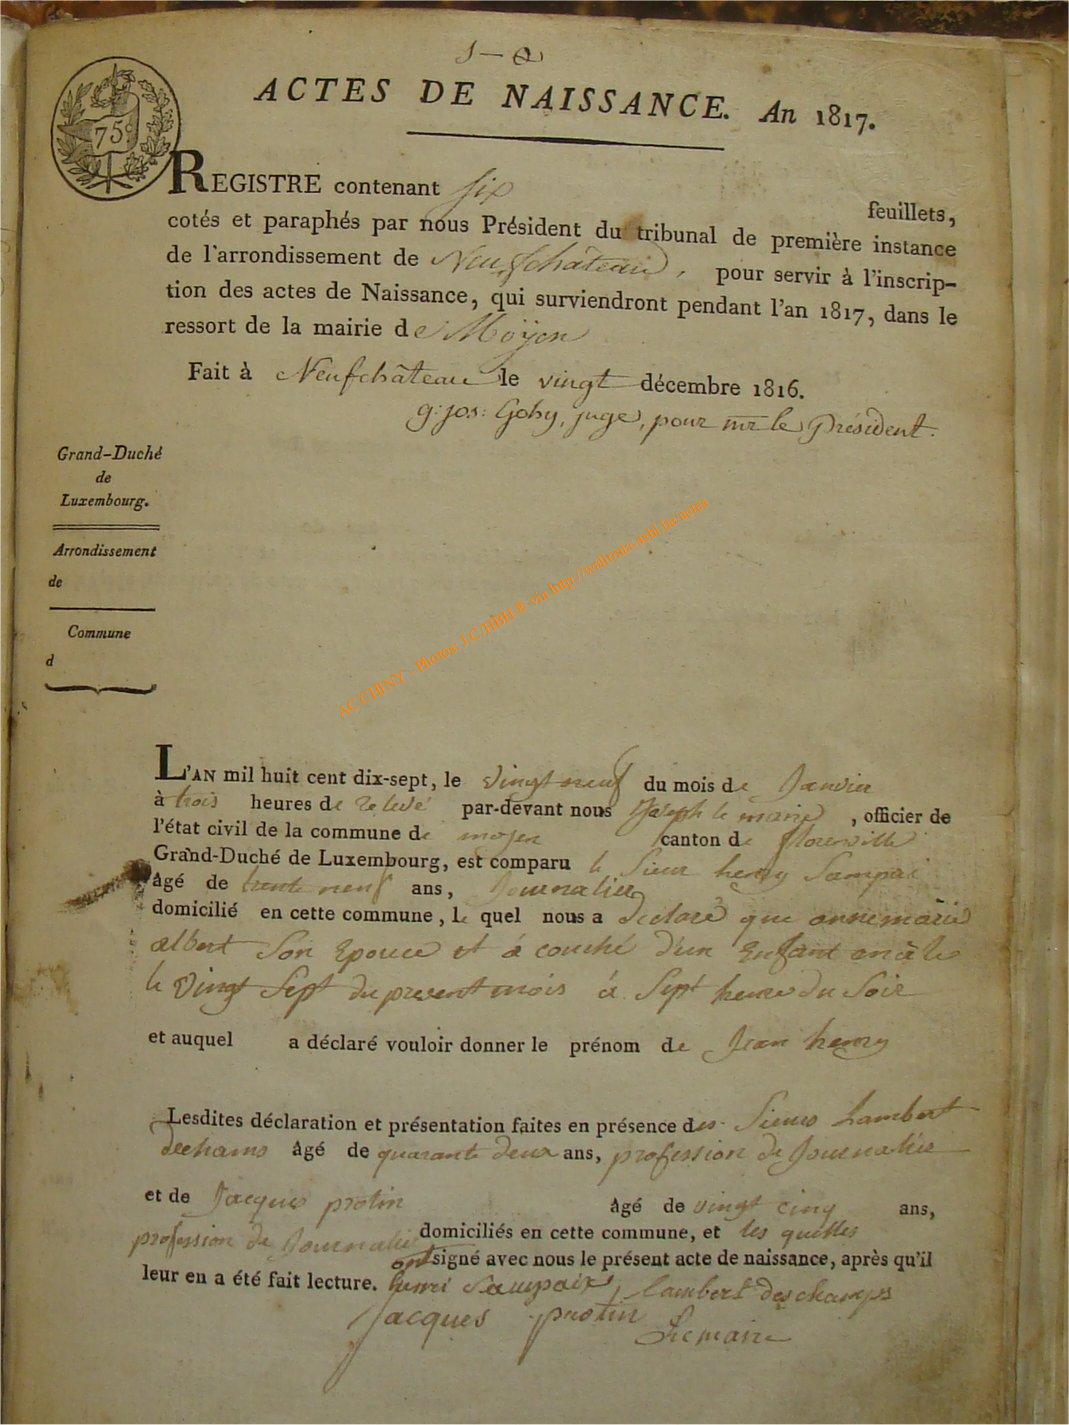 ACTES DE NAISSANCE. An 1817.
75
REGISTRE contenant six feuillets,
cotés et paraphés par nous Président du tribunal de première instance
de l'arrondissement de Neufchâteau, pour servir à l'inscrip-
tion des actes de Naissance, qui surviendront pendant l'an 1817, dans le
ressort de la mairie de Moÿen
Fait à Neufchâteau le vingt décembre 1816.
g: jos: Gohy, juge, pour mr le Président.
Grand-Duché
de
Luxembourg.
Arrondissement
de
Commune
d
ACCHINY - Photos J.C.HBH® via http://wallonia-asbl.be/actes
L'AN mil huit cent dix-sept, le vingt neuf du mois de Janvier
à trois heures de relevé par-devant nous Joseph le marie, officier de
l'état civil de la commune de moyen canton de florenville
Grand-Duché de Luxembourg, est comparu le Sieur henry Sampai
âgé de trente neuf ans, Journalier
domicilié en cette commune, le quel nous a declaré que annemarie
albert Son Epouce et á couché d'un Enfant mâle
le Vingt Sept du present mois á Sept heure du Soir
et auquel a déclaré vouloir donner le prénom de Jean henry
Lesdites déclaration et présentation faites en présence des Sieurs Lambert
dechams âgé de quarante deux ans, profession de Journalier
et de Jacques protin âgé de vingt cinq ans,
profession de Journalier domiciliés en cette commune, et les quelles
ont signé avec nous le présent acte de naissance, après qu'il
leur en a été fait lecture. henri Sampaix, lambert deschamps
Jacques protin
Lemaire